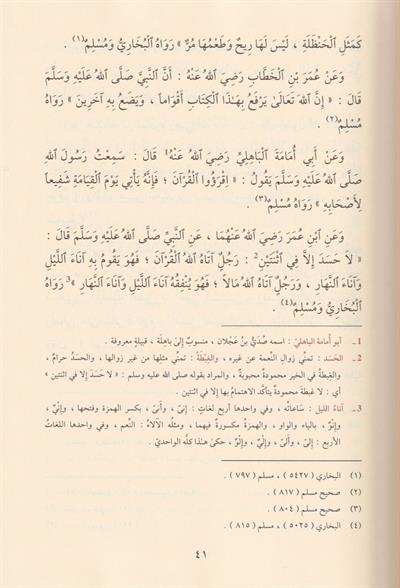 كَمَثَلِ ٱلْحَنْظَلَةِ ، لَيْسَ لَهَا رِيحٌ وَطَعْمُهَا مُرٌّ » رَوَاهُ ٱلْبُخَارِيُّ وَمُسْلِمٌ(١) .
وَعَنْ عُمَرَ بْنِ ٱلْخَطَّابِ رَضِيَ ٱللهُ عَنْهُ : أَنَّ ٱلنَّبِيَّ صَلَّى ٱللهُ عَلَيْهِ وَسَلَّمَ
قَالَ : « إِنَّ ٱللهَ تَعَالَىٰ يَرْفَعُ بِهَـٰذَا ٱلْكِتَابِ أَقْوَاماً ، وَيَضَعُ بِهِ آخَرِينَ » رَوَاهُ
مُسْلِمٌ(٢) .
وَعَنْ أَبِي أُمَامَةَ ٱلْبَاهِلِيِّ رَضِيَ ٱللهُ عَنْهُ1 قَالَ : سَمِعْتُ رَسُولَ ٱللهِ
صَلَّى ٱللهُ عَلَيْهِ وَسَلَّمَ يَقُولُ : « اِقْرَؤُوا ٱلْقُرْآنَ ؛ فَإِنَّهُ يَأْتِي يَوْمَ ٱلْقِيَامَةِ شَفِيعاً
لِأَصْحَابِهِ » رَوَاهُ مُسْلِمٌ(٣) .
وَعَنِ ٱبْنِ عُمَرَ رَضِيَ ٱللهُ عَنْهُمَا ، عَنِ ٱلنَّبِيِّ صَلَّى ٱللهُ عَلَيْهِ وَسَلَّمَ قَالَ :
« لاَ حَسَدَ إِلاَّ فِي ٱثْنَتَيْنِ2 : رَجُلٌ آتَاهُ ٱللهُ ٱلْقُرْآنَ ؛ فَهُوَ يَقُومُ بِهِ آنَاءَ ٱللَّيْلِ
وَآنَاءَ ٱلنَّهَارِ ، وَرَجُلٌ آتَاهُ ٱللهُ مَالاً ؛ فَهُوَ يُنْفِقُهُ آنَاءَ ٱللَّيْلِ وَآنَاءَ ٱلنَّهَارِ »3 رَوَاهُ
ٱلْبُخَارِيُّ وَمُسْلِمٌ(٤) .
1ـ أبو أمامة الباهليُّ : اسمه صُدَيُّ بنُ عَجْلان ، منسوبٌ إلىٰ باهِلَة ، قبيلةٍ معروفة .
2ـ الحَسَد : تمنِّي زوالِ النِّعمة عن غيره ، والغِبْطَةُ : تمنِّي مثلِها من غير زوالها ، والحسَدُ حرامٌ ،
والغِبطة في الخير محمودةٌ محبوبةٌ ، والمراد بقوله صلى الله عليه وسلم : « لا حَسَدَ إلا في اثنتين »
أي : لا غبطةَ محمودةً يتأكَّد الاهتمامُ بها إلا في اثنتين .
3ـ آناءُ الليل : سَاعاتُه ، وفي واحدها أربع لغاتٍ : إنىً ، وأَنىً ، بكسر الهمزة وفتحها ، وإِنْيٌ ،
وإنْوٌ ، بالياء والواو ، والهمزة مكسورةٌ فيهما ، ومثلُه الآلاءُ : النِّعم ، وفي واحدها اللغاتُ
الأربع : إلىً ، وأَلىً ، وإِلْيٌ ، وإِلْوٌ ، حكىٰ هذا كلَّه الواحديُّ .
(١) البخاري ( ٥٤٢٧ ) ، مسلم ( ٧٩٧ ) .
(٢) صحيح مسلم ( ٨١٧ ) .
(٣) صحيح مسلم ( ٨٠٤ ) .
(٤) البخاري ( ٥٠٢٥ ) ، مسلم ( ٨١٥ ) .
٤١